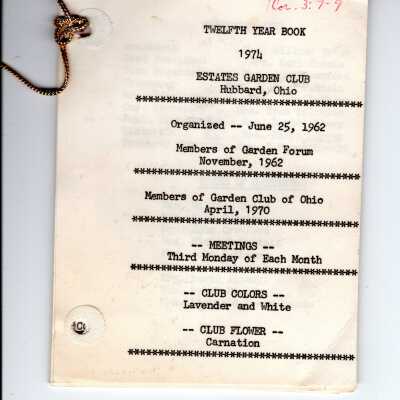 1Cor. 3:7-9
TWELFTH YEAR BOOK
1974
ESTATES GARDEN CLUB
Hubbard, Ohio
******************************************
Organized -- June 25, 1962
Members of Garden Forum
November, 1962
******************************************
Members of Garden Club of Ohio
April, 1970
******************************************
-- MEETINGS --
Third Monday of Each Month
******************************************
-- CLUB COLORS --
Lavender and White
-- CLUB FLOWER --
Carnation
******************************************